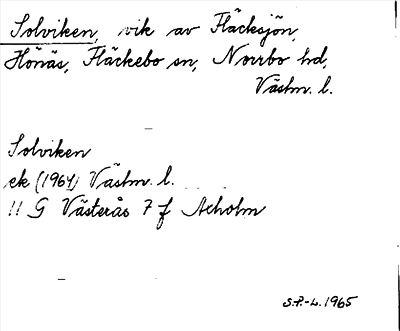 Solviken, vik av Fläcksjön,
Hönäs, Fläckebo sn, Norrbo hd,
Västm. l.
Solviken
ek (1964) Västm. l.
11 G Västerås 7 f Axholm
S.P.-L. 1965